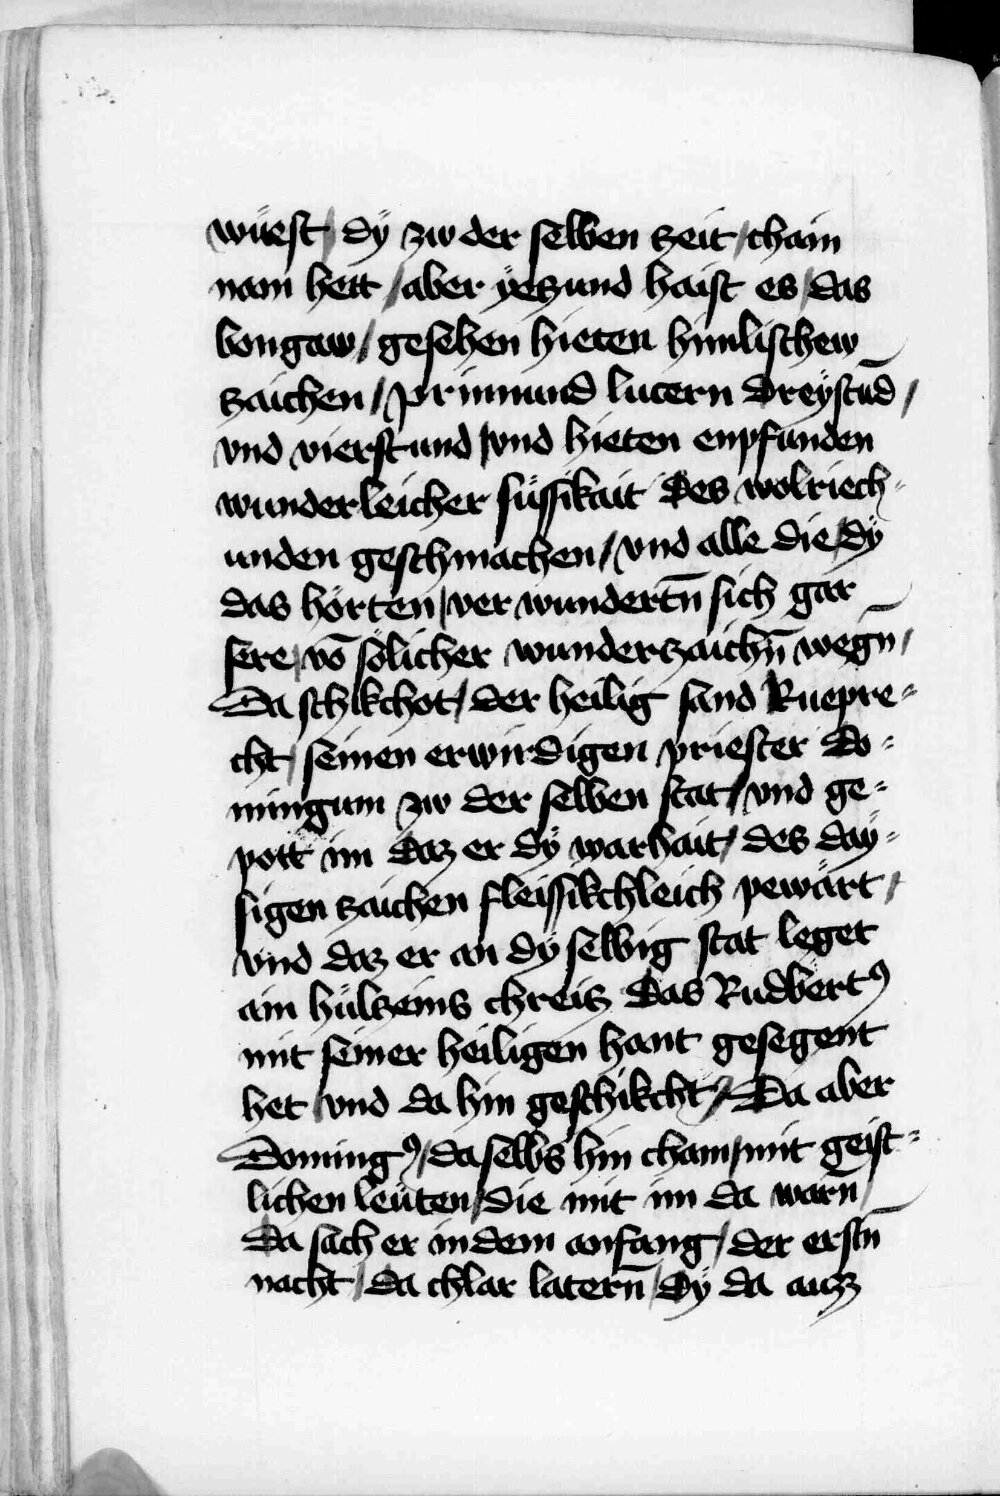 wüest / dÿ zw der selben zeit / chain
nam hett / aber yeczund haist es / das
bongaw / gesehen hieten himlischew
zaichen / prinnund lucern dreÿstūd /
vnd vierstund / vnd hieten enpfunden
wunderleicher süssikait des wolriech=
unden geschmachen / vnd alle die / dÿ
das hörten / ver wundertn̄ sich gar
sere / vō sölicher wunderzaichn̄ wegn̄ /
Da schikchot / der heilig sand Ruepre=
cht / seinen erwirdigen priester do=
mingum zw der selben stat / vnd ge=
pott im daz er dÿ warhait / des daÿ=
sigen zaichen fleissikchleich pewärt /
vnd daz er an dÿ selbig stat leget
ain hülzeins chreitz das Rudbertꝰ
mit seiner heiligen hant gesegent
het / vnd da hin geschikcht / Da aber
Domingꝰ / daselbs hin cham / mit geist=
lichen leüten / die mit im da warn̄ /
Da sach er in dem anfang / der erstn̄
nacht / da chlar latern̄ / Dÿ da auzz